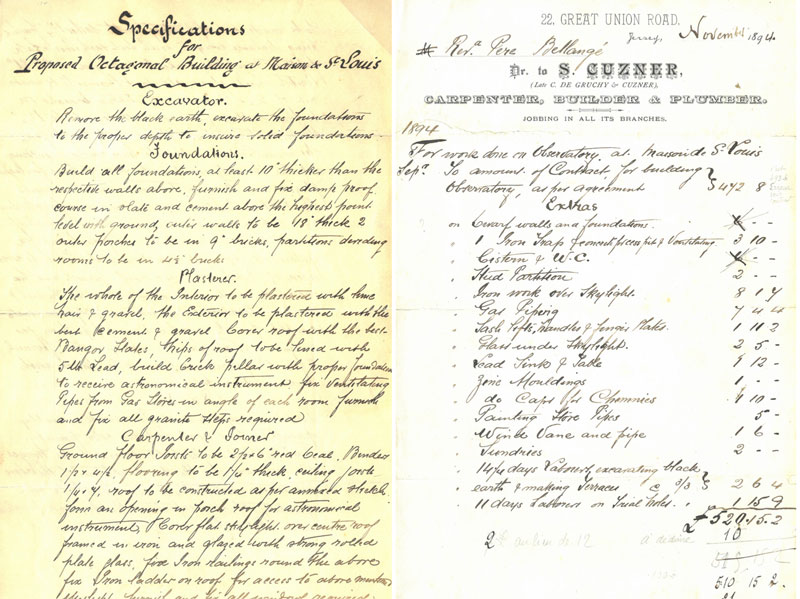 Specifications
for
Proposed Octagonal Building at Maison St Louis
Excavator.
Remove the black earth, excavate the foundations
to the proper depth to insure solid foundations
Foundations.
Build all foundations, at least 10" thicker than the
respective walls above, furnish and fix damp proof
course in slate and cement above the highest point
level with ground, outer walls to be 18" thick 2
outer porches to be in 9" bricks, partitions dividing
rooms to be in 4½ bricks
Plasterer.
The whole of the Interior to be plastered with lime
hair & gravel, the Exterior to be plastered with the
best Cement & gravel Cover roof with the best
Bangor Slates, hips of roof to be lined with
5 lb Lead, build brick pillar with proper foundation
to receive astronomical instrument fix Ventilating
Pipes from Gas Stoves in angle of each room furnish
and fix all granite steps required
Carpenter & Joiner
Ground floor Joists to be 2½ x 6" red Deal, Binders
flooring to be 1⅛" thick, ceiling joists
roof to be constructed as per annexed sketch
form an opening in porch roof for astronomical
instrument, Cover flat skylight over centre roof
framed in iron and glazed with strong rolled
plate glass, fix Iron railings round the above
fix Iron ladder on roof for access to above
skylight furnish and fix all
22, GREAT UNION ROAD.
Jersey, November 1894.
Revd. Pere Bellangé
Dr. to S. CUZNER,
(Late C. DE GRUCHY & CUZNER),
CARPENTER, BUILDER & PLUMBER.
JOBBING IN ALL ITS BRANCHES.
1894
For work done on Observatory at Maison St Louis
Sept. To amount of Contract for building
Observatory, as per agreement } 472 8
Extras
on Dwarf walls and foundations - -
" 1 Iron Trap & Ventilating 3 10 -
" Cistern & W.C. - -
" Stud Partition 2 - -
" Iron work over Skylight. 8 1 7
" Gas Piping 7 4 4
" Sash lifts, handles & finger Plates. 1 11 2
" Glass under skylight. 2 5 -
" Lead Sink & Table 12 -
" Zinc Mouldings 1 - -
" do Caps for Chimnies 10 -
" Painting Stove Pipes 5 -
" Wind Vane and pipe 1 6 -
" Sundries 2 - -
" 14¼ days Labourer, excavating black
earth & making Terraces @ 3/3 } 2 6 4
" 11 days Labourer on Trial holes. 1 15 9
£ 520.15.2
10
510 15 2.